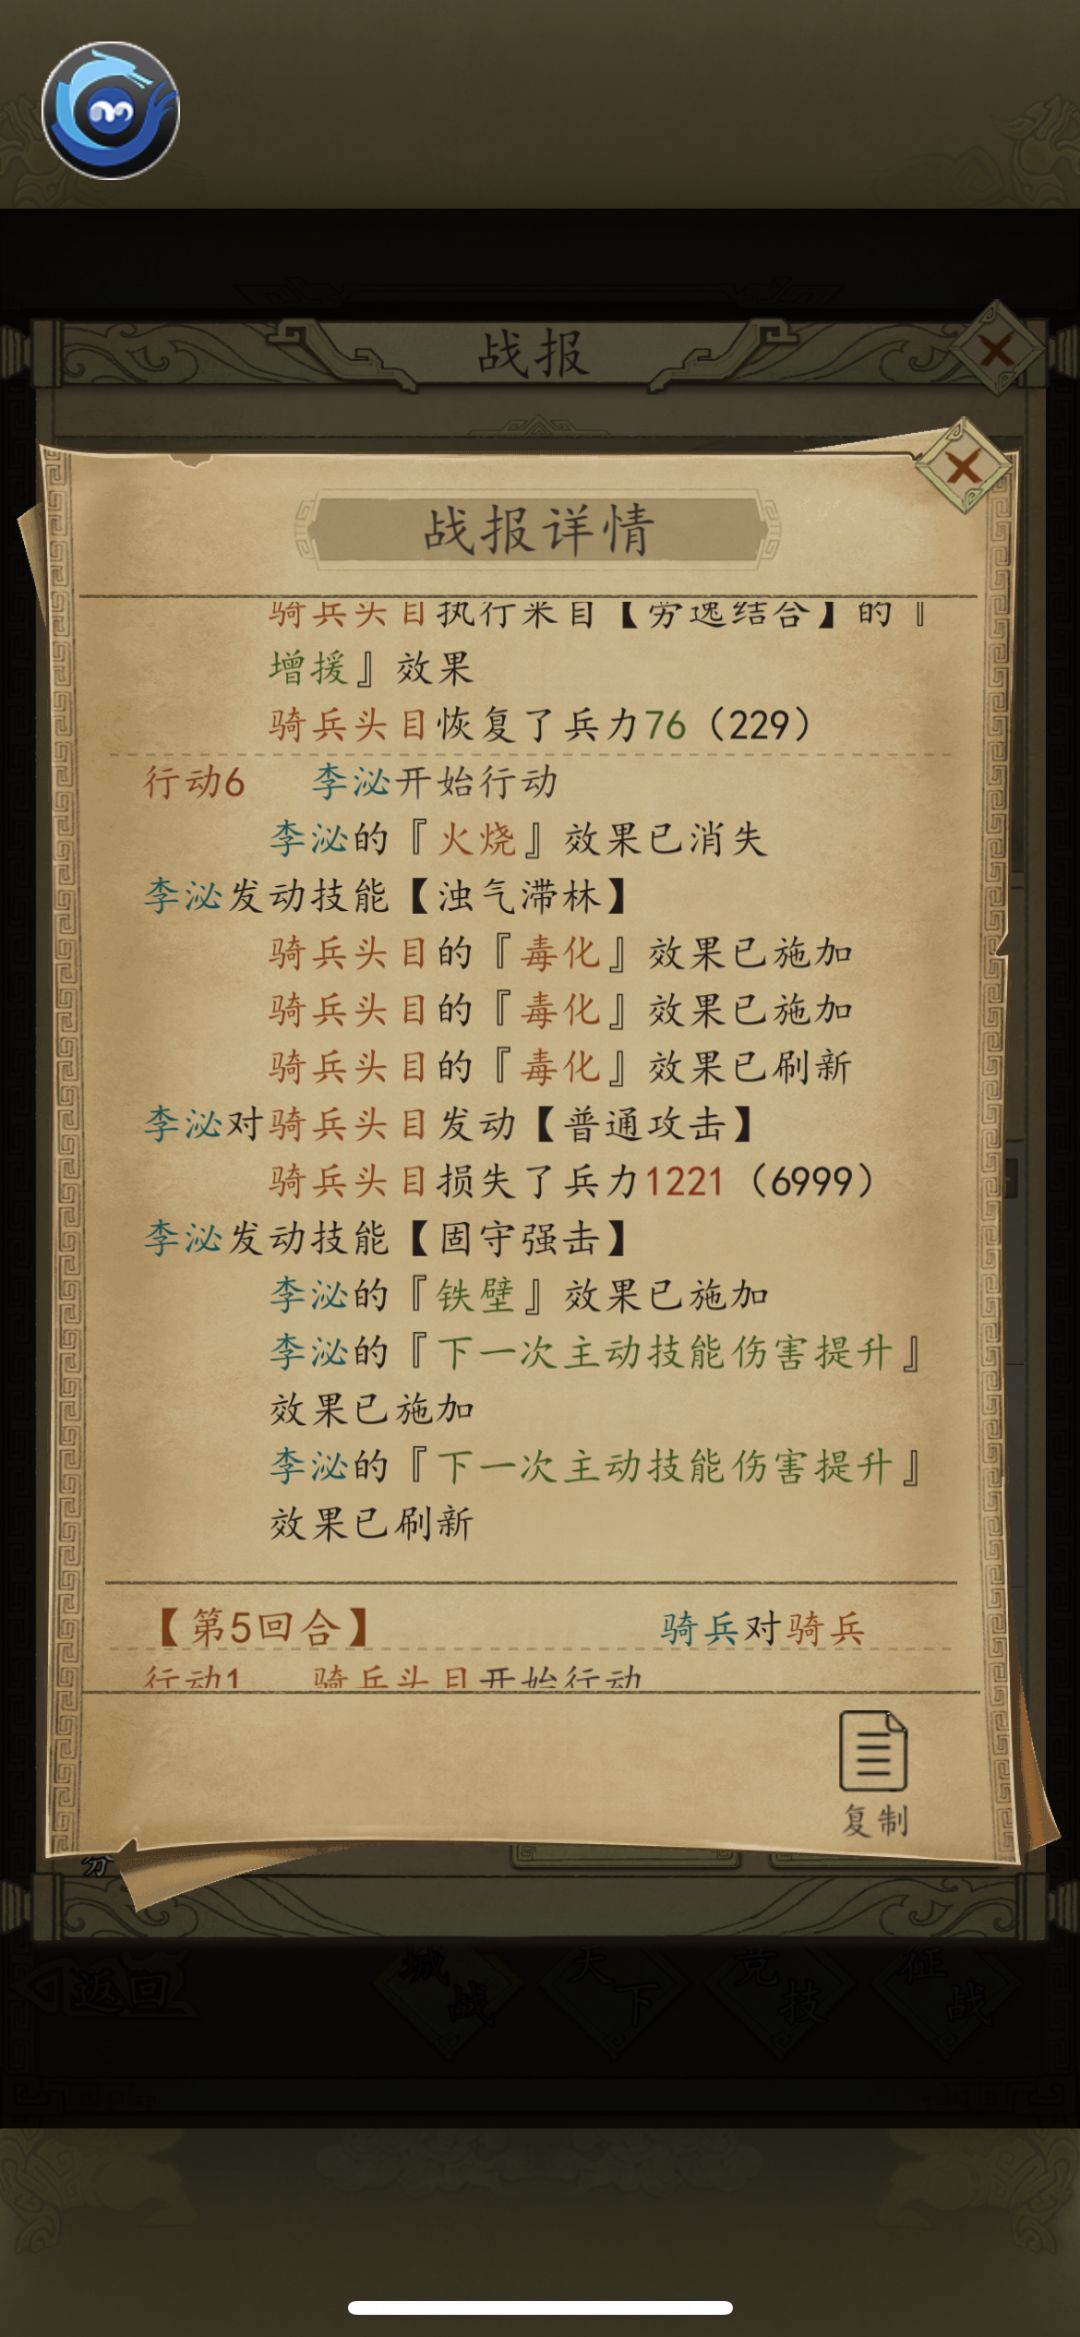 战报
战报详情
骑兵头目执行来自【劳逸结合】的『
增援』效果
骑兵头目恢复了兵力76（229）
行动6 李泌开始行动
李泌的『火烧』效果已消失
李泌发动技能【浊气滞林】
骑兵头目的『毒化』效果已施加
骑兵头目的『毒化』效果已施加
骑兵头目的『毒化』效果已刷新
李泌对骑兵头目发动【普通攻击】
骑兵头目损失了兵力1221（6999）
李泌发动技能【固守强击】
李泌的『铁壁』效果已施加
李泌的『下一次主动技能伤害提升』
效果已施加
李泌的『下一次主动技能伤害提升』
效果已刷新
【第5回合】 骑兵对骑兵
行动1 骑兵头目开始行动
复制
返回
城战
天下
竞技
征战